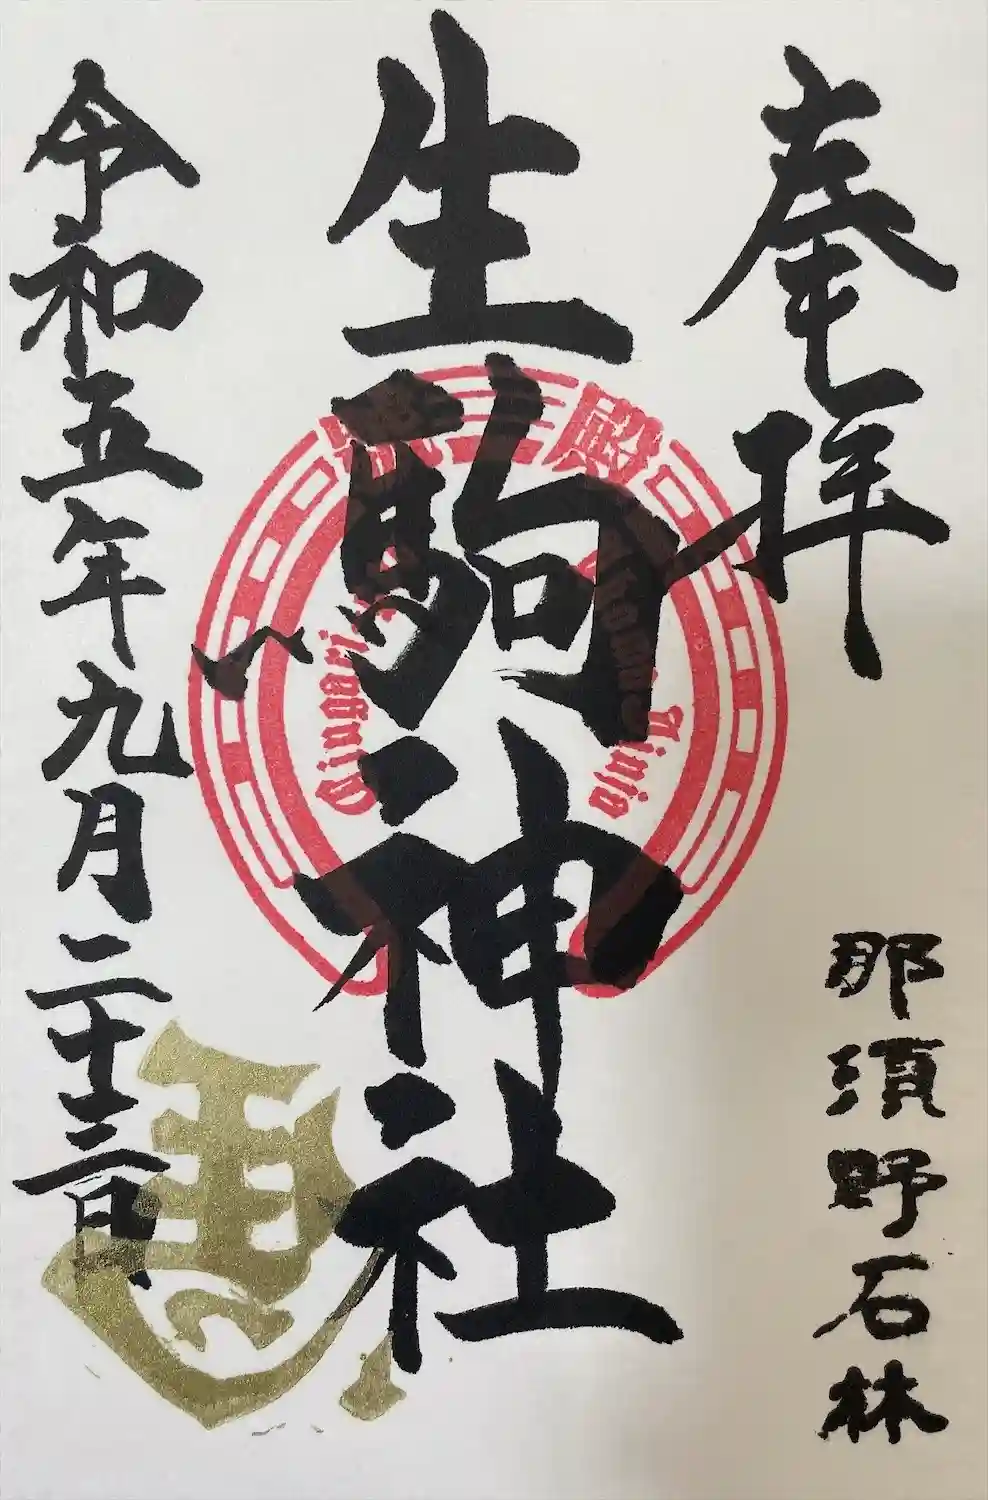 奉拝
那須野石林
生駒神社
令和五年九月二十三日
Jinja